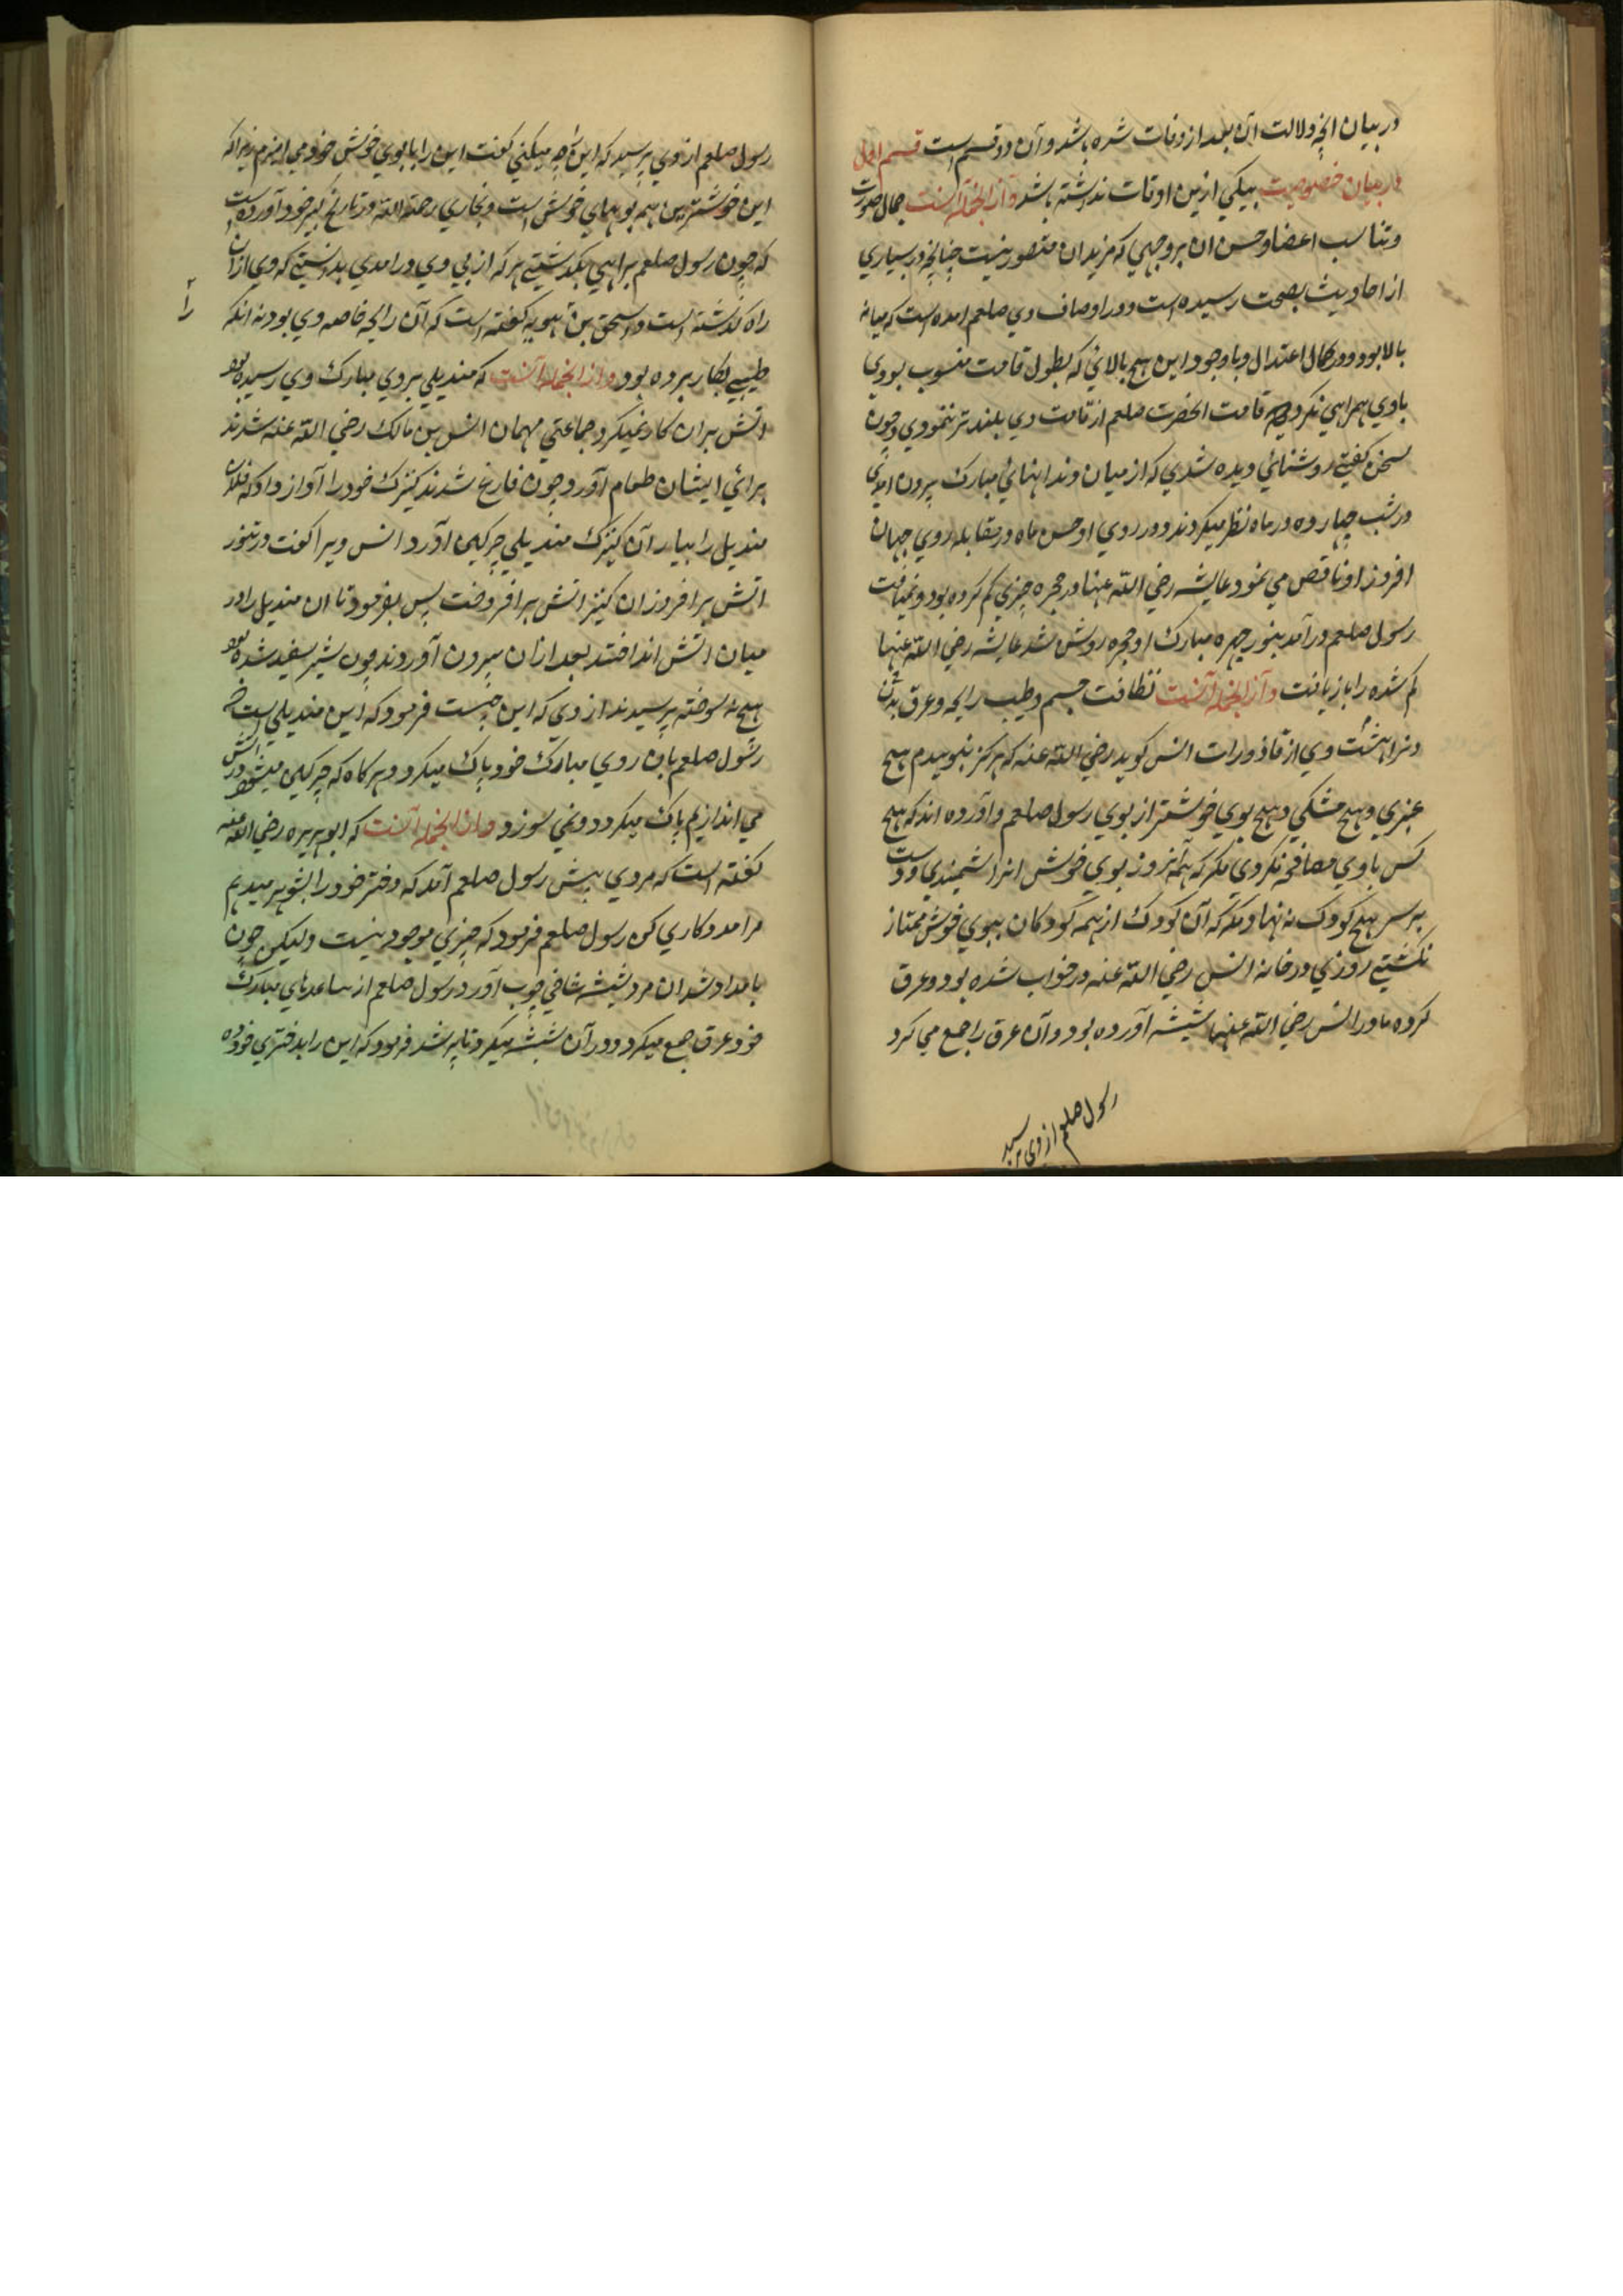 در بیان انچه دلالت آن بعد از وفات شده باشد و آن دو قسم است قسم اول
در بیان خصوصیت بیکی ازین اوقات نداشته باشد و از انجمله آنست جمال صورت
و تناسب اعضا و حسن ان بر وجهی که مزید ان متصور نیست چنانچه در بسیاری
از احادیث بصحت رسیده است و در اوصاف وی صلعم امده است که میانه
بالا بود و در کمال اعتدال و با وجود این هیچ بالائی که بطول قامت منسوب بودی
با وی همراهی نکردی که قامت انحضرت صلعم از قامت وی بلند تر ننمودی و چون
سخن گفتی روشنائی دیده شدی که از میان دندانهای مبارک بیرون امدی
در شب چهارده در ماه نظر میکردند و در روی او حسن ماه در مقابله روی جهان
افروز او ناقص می نمود عایشه رضی الله عنها در حجره چیزی گم کرده بود و نمییافت
رسول صلعم در آمد بنور چهره مبارک او حجره روشن شد عایشه رضی الله عنها
گم شده را باز یافت و از انجمله آنست نظافت جسم و طیب رایحه و عرق بدن
و نزاهت وی از قاذورات انس کوید رضی الله عنه که هرگز نبوییدم هیچ
عنبری و هیچ مشکی و هیچ بوی خوشتر از بوی رسول صلعم و آورده اند که هیچ
کس با وی مصافحه نکردی مگر که همه آنروز بوی خوش انرا شمیدی و دست
بر سر هیچ کودک ننهادی مگر که آن کودک از همه کودکان ببوی خوش ممتاز
نگشتی روزی در خانه انس رضی الله عنه در خواب شده بود و عرق
کرده مادر انس رضی الله عنها شیشه آورده بود و آن عرق را جمع می کرد
رسول صلعم از وی پرسید
رسول صلعم از وی پرسید که این را چه میکنی گفت این را با بوی خوش خود می امیزم زیرا که
این خوشترین همه بوهای خوش است و بخاری رحمة الله در تاریخ کبیر خود آورده است
که چون رسول صلعم براهی بگذشتی هر که از پی وی در امدی بدانستی که وی ازان
راه گذشته است و اسحق بن راهویه گفته است که آن رایحه خاصه وی بود نه انکه
را
طیبی بکار برده بود و از انجمله آنست که مندیلی بروی مبارک وی رسیده بود
اتش بران کار نمیکرد جماعتی مهمان انس بن مالک رضی الله عنه شدند
برای ایشان طعام آورد چون فارغ شدند کنیزک خود را آواز داد که فلان
مندیل را بیار آن کنیزک مندیلی چرکین آورد انس ویرا گفت در تنور
اتش بر افروز ان کنیز اتش بر افروخت پس بفرمود تا ان مندیل را در
میان اتش انداختند بعد ازان بیرون آوردند چون شیر سفید شده بود
هیچ نه سوخته پرسیدند از وی که این چیست فرمود که این مندیلی است که
رسول صلعم بان روی مبارک خود پاک میکرد و هر گاه که چرکین میشود در اتش
می اندازیم پاک میگردد و نمی سوزد و از انجمله آنست که ابو هریره رضی الله عنه
گفته است که مردی پیش رسول صلعم آمد که دختر خود را بشوهر میدهم
مرا مددکاری کن رسول صلعم فرمود که چیزی موجود نیست ولیکن چون
بامداد شد ان مرد شیشه شاخی چوب آورد رسول صلعم از ساعدهای مبارک
خود عرق جمع میکرد و در آن شیشه میکرد تا پر شد فرمود که این را بدختری خود ده